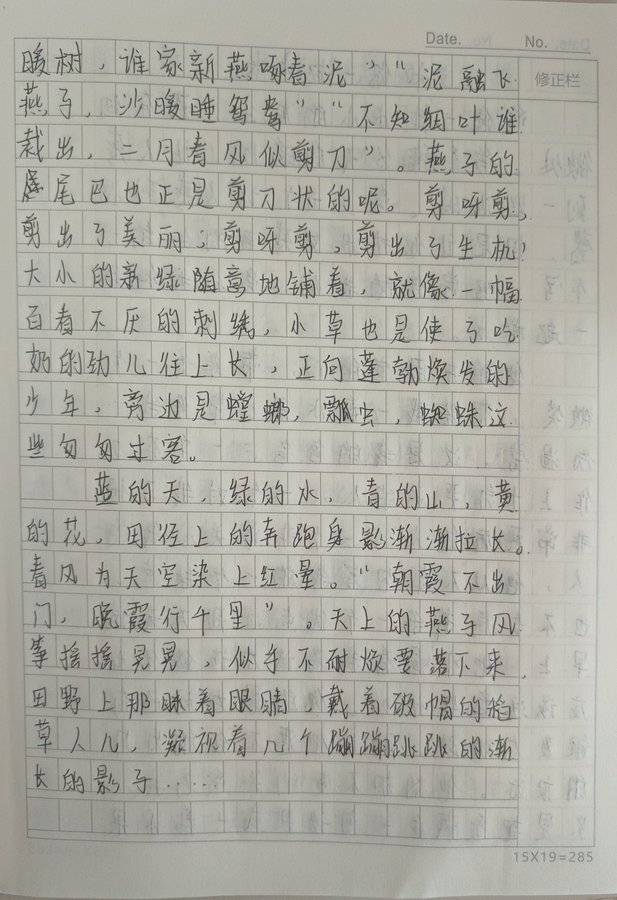 Date.
No.
修正栏
暖树，谁家新燕啄春泥”“泥融飞
燕子，沙暖睡鸳鸯”“不知细叶谁
裁出，二月春风似剪刀”。燕子的
尾巴也正是剪刀状的呢。剪呀剪，
剪出了美丽；剪呀剪，剪出了生机！
大小的新绿随意地铺着，就像一幅
百看不厌的刺绣，小草也是使了吃
奶的劲儿往上长，正向蓬勃焕发的
少年，旁边是螳螂，瓢虫，蜘蛛这
些匆匆过客。
蓝的天，绿的水，青的山，黄
的花，田径上的奔跑身影渐渐拉长。
春风为天空染上红晕。“朝霞不出
门，晚霞行千里”。天上的燕子风
筝摇摇晃晃，似乎不耐烦要落下来，
田野上那眯着眼睛，戴着破帽的稻
草人儿，凝视着几个蹦蹦跳跳的渐
长的影子……
15X19=285